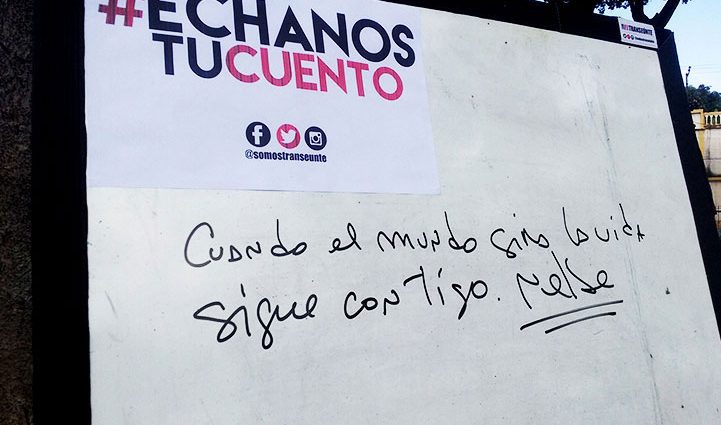 #ECHANOS
TUCUENTO
@somostranseunte
Cuando el mundo gira la vida
sigue contigo.